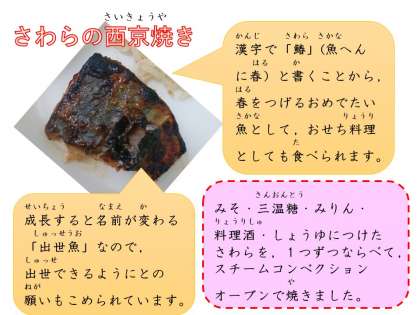 さいきょうや
さわらの西京焼き
かんじ さわら さかな
漢字で「鰆」(魚へん
はる か
に春)と書くことから,
はる
春をつげるおめでたい
さかな りょうり
魚として,おせち料理
た
としても食べられます。
せいちょう なまえ か
成長すると名前が変わる
しゅっせうお
「出世魚」なので,
しゅっせ
出世できるようにとの
ねが
願いもこめられています。
さんおんとう
みそ・三温糖・みりん・
りょうりしゅ
料理酒・しょうゆにつけた
さわらを,1つずつならべて,
スチームコンベクション
や
オーブンで焼きました。